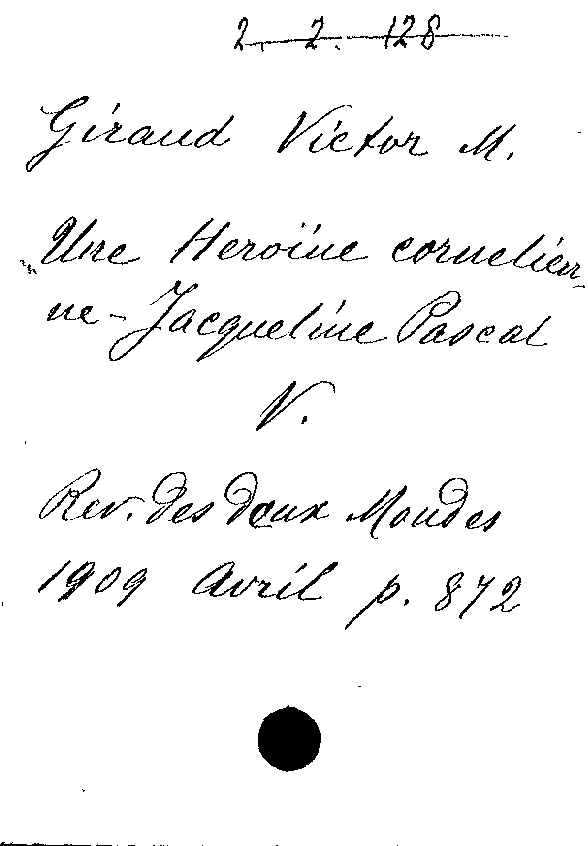 2. 2. 128
Giraud Victor M.
„Une Heroïne cornelien-
ne - Jacqueline Pascal
V.
Rev. des deux Mondes
1909 Avril p. 872